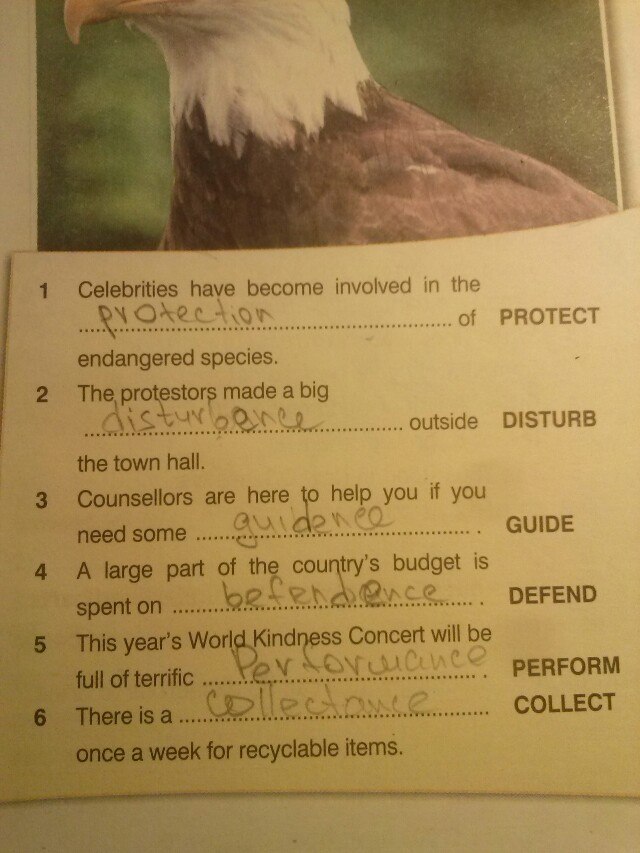 1 Celebrities have become involved in the
protection of PROTECT
endangered species.
2 The protestors made a big
disturbance outside DISTURB
the town hall.
3 Counsellors are here to help you if you
need some guidence . GUIDE
4 A large part of the country's budget is
spent on befendence . DEFEND
5 This year's World Kindness Concert will be
full of terrific Performance . PERFORM
6 There is a collectance COLLECT
once a week for recyclable items.